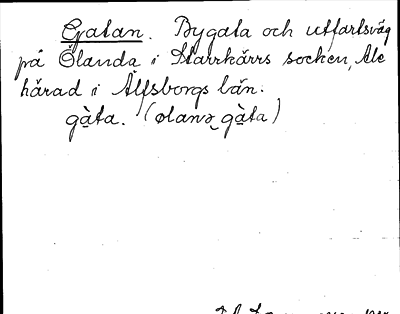 Gatan. Bygata och utfartsväg
på Ölanda i Starrkärrs socken, Ale
härad i Älfsborgs län.
gàta. (olanə gàta)